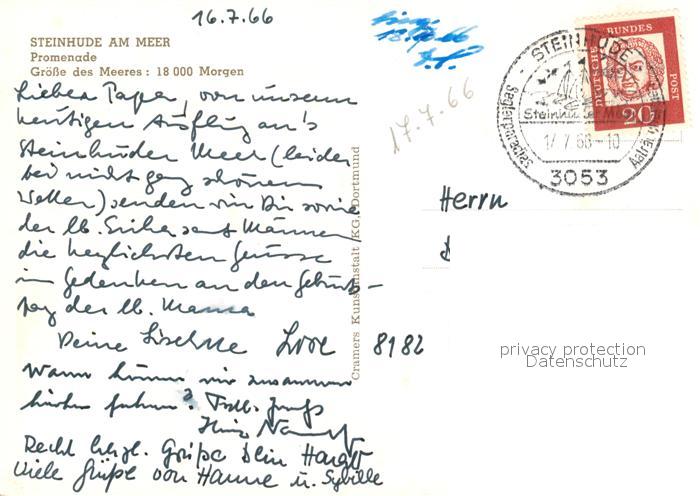 16.7.66
STEINHUDE AM MEER
Promenade
Größe des Meeres : 18 000 Morgen
Lieber Papa, von unserem
heutigen Ausflug an's
Steinhuder Meer (leider
bei nicht ganz schönem
Wetter) senden wir Dir sowie
der lb. und Männe
die herzlichsten Grüsse
im Gedenken an den Geburts-
tag der lb. Mama
Deine Lore
Wann können wir zusammen
fahren?
Recht herzl. Grüße Dein
Viele Grüße von Hanne u. Sybille
Cramers Kunstanstalt KG., Dortmund
18.7.66
17.7.66
DEUTSCHE BUNDESPOST
20
STEINHUDE
Steinhuder Meer
Seglerparadies
17.7.66-10
3053
Herrn
8182
privacy protection
Datenschutz